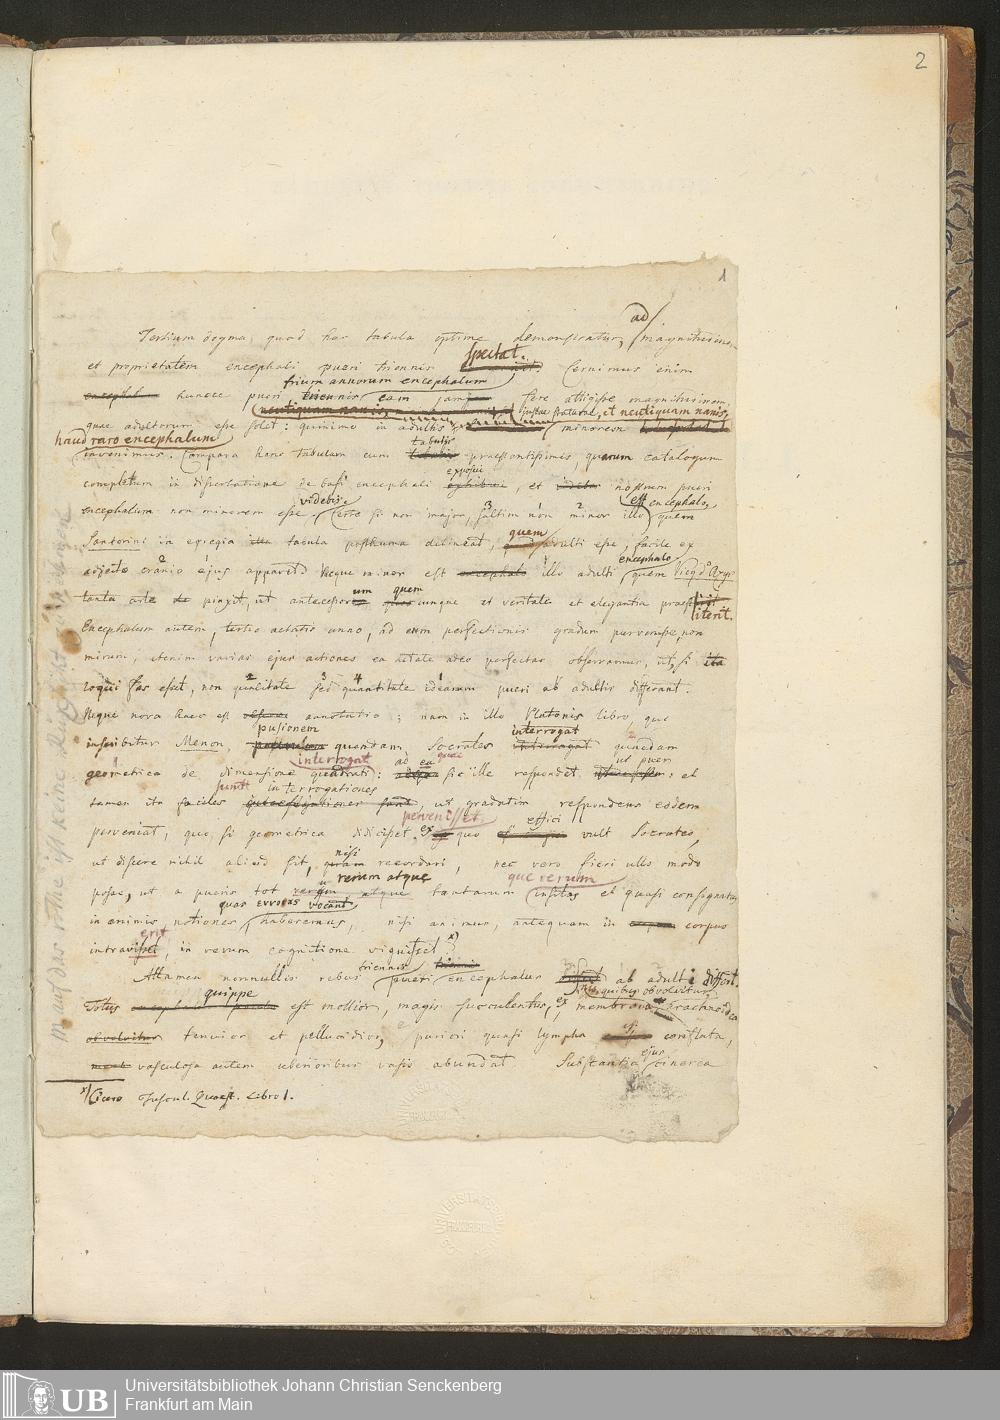 2
1
Tertium dogma, quod hac tabula optime demonstratur, ad magnitudinem
et proprietatem encephali pueri triennis spectat. Cernimus enim
trium annorum encephalum
huncce pueri triennis eam jam fere attigisse magnitudinem,
neutiquam nanis, justae staturae, et neutiquam nanis,
quae adultorum esse solet: quinimo in adultis minorem
haud raro encephalum
invenimus. Compara hanc tabulam cum tabulis praestantissimis, quarum catalogum
completum in dissertatione de basi encephali exposui, et nostrum pueri
encephalum non minorem esse videbis. Certe si non major, saltim non minor illo est encephalo, quem
Santorini in egregia tabula posthuma delineat, quem adulti esse, facile ex
adjecto cranio ejus apparet. Neque minor est illo adulti encephalo quem Vicq d'Azyr
tanta arte pinxit, ut antecessorum quemcunque et veritate et elegantia praestiterit.
Encephalum autem, tertio aetatis anno, ad eum perfectionis gradum pervenisse, non
mirum, etenim varias ejus actiones ea aetate adeo perfectas observamus, ut, si ita
loqui fas esset, non qualitate sed quantitate idearum pueri ab adultis differant.
Neque nova haec est annotatio; nam in illo Platonis libro, qui
inscribitur Menon, pusionem quendam, Socrates interrogat quaedam
geometrica de dimensione quadrati: ad ea quae sic ille respondet ut puer, et
tamen ita faciles interrogationes sunt, ut gradatim respondens eodem
perveniat, quo, si geometrica didicisset pervenisset. ex quo effici vult Socrates,
ut discere nihil aliud sit, nisi recordari, nec vero fieri ullo modo
posse, ut a pueris tot rerum atque tantarum insitas et quasi consignatas
in animis, notiones, quas εννοιας vocant, haberemus, nisi animus, antequam in corpus
intravisset, in rerum cognitione viguisset x)
Attamen nonnullis rebus triennis pueri encephalus ab adulti differt.
Totus quippe est mollior, magis succulentus, ex membranis, quibus obvolvitur, Arachnoidea
tenuior et pellucidior, puriori quasi lympha conflata,
vasculosa autem uberioribus vasis abundat Substantia ejus cinerea
x) Cicero Tuscul. Quaest. Libro 1.
Universitätsbibliothek Johann Christian Senckenberg
Frankfurt am Main
UB